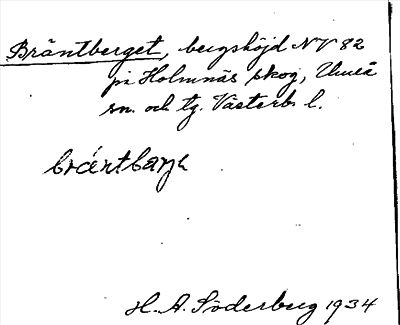 Bräntberget, bergshöjd NV 82
på Holmnäs skog, Umeå
sn. och tg. Västerb. l.
bräntbarjə
H. A. Söderberg 1934